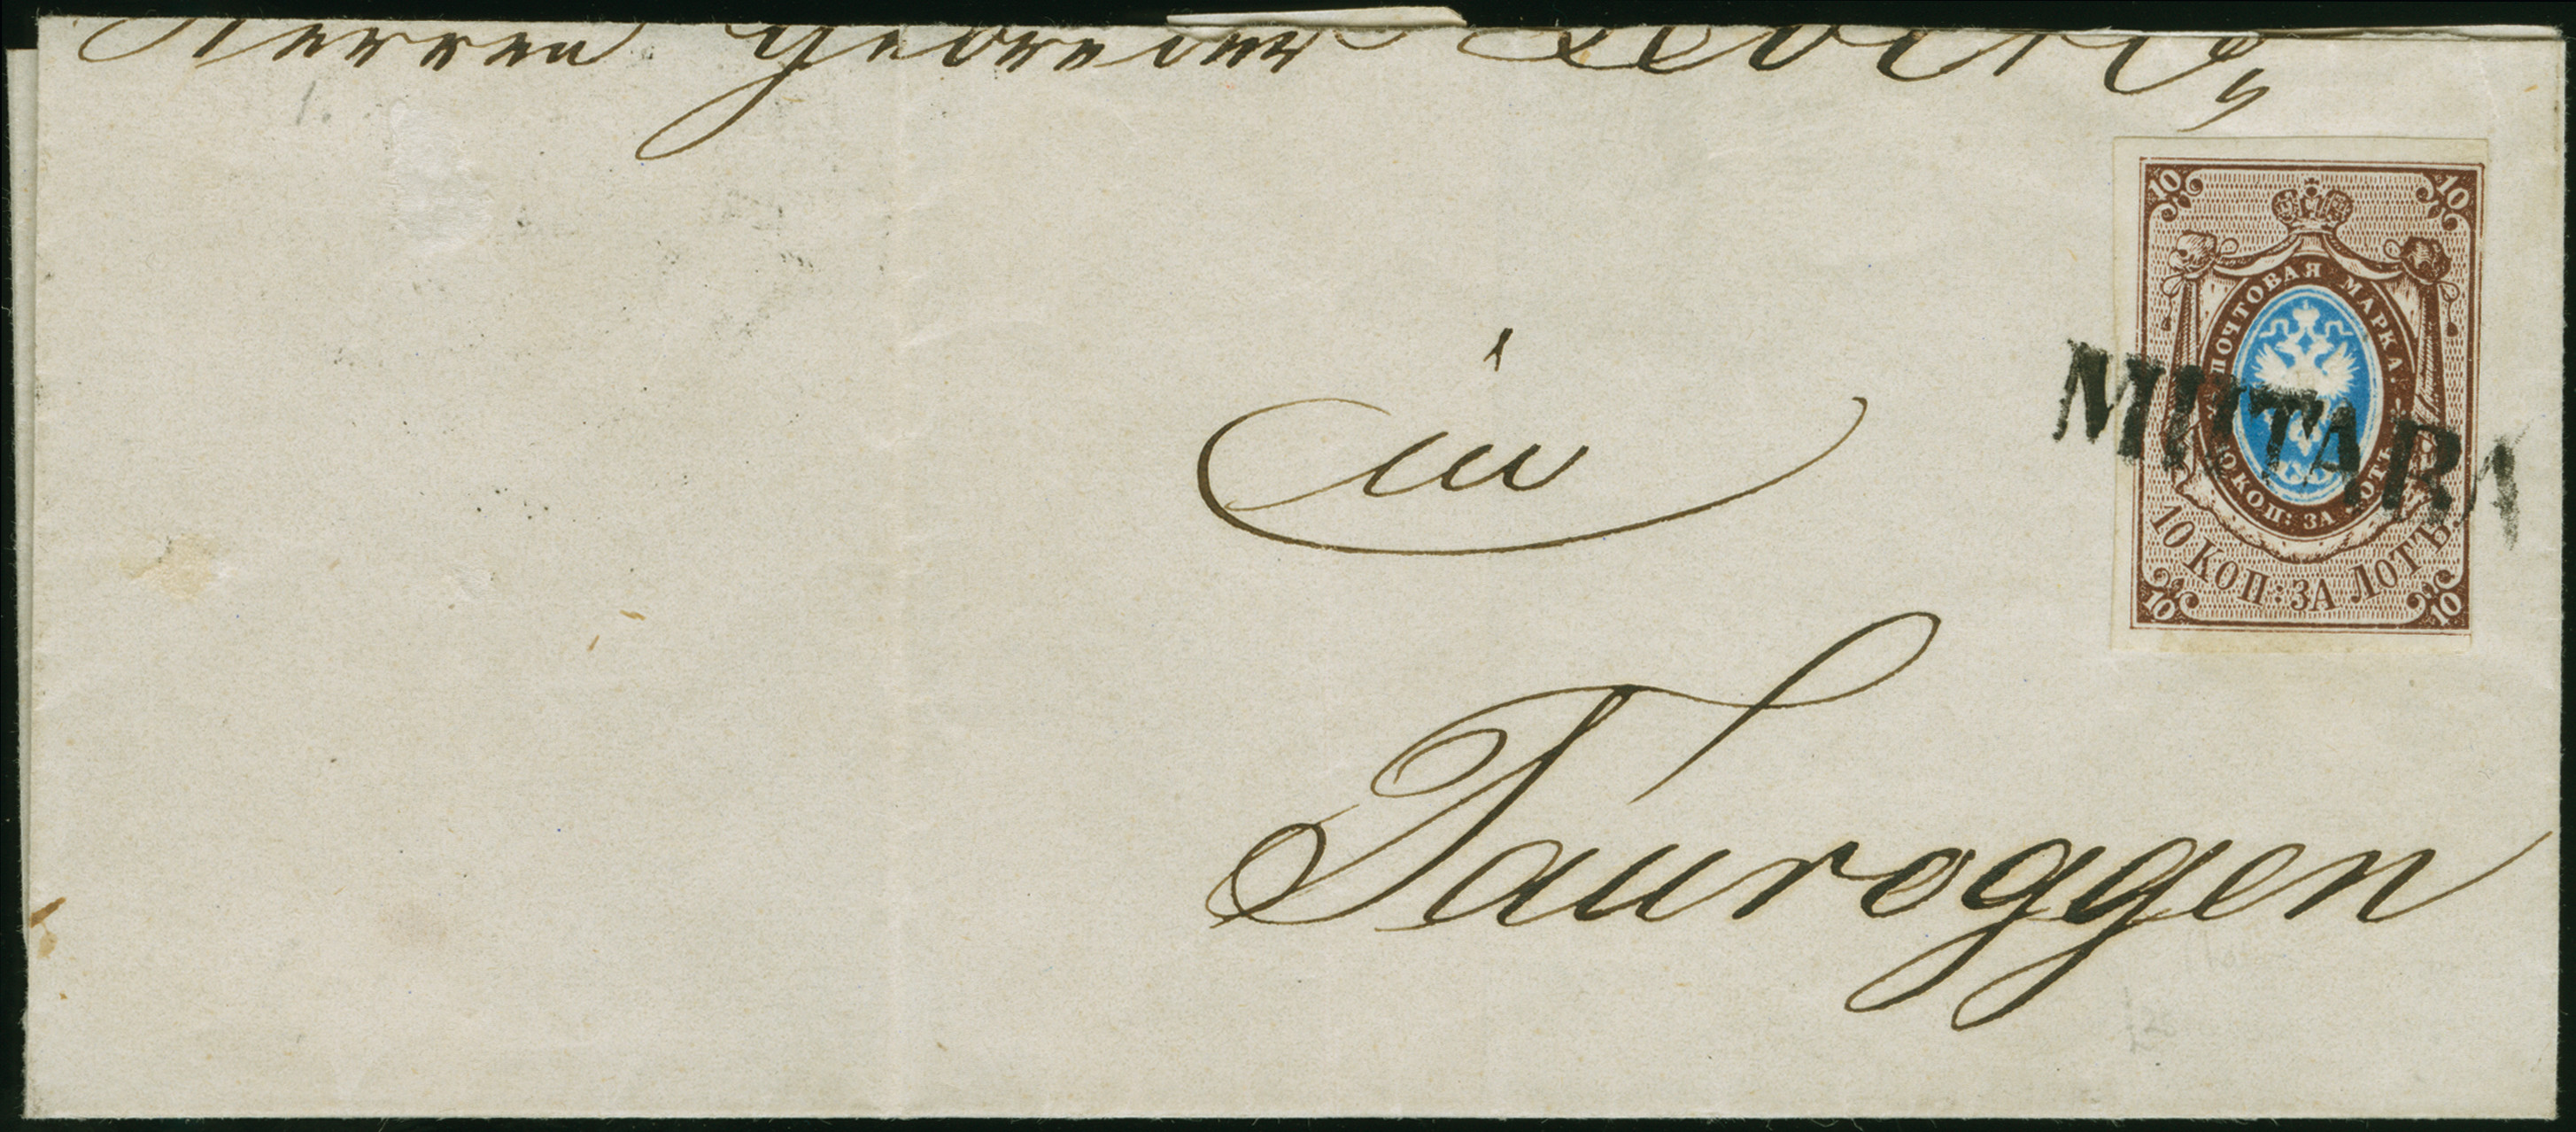 Herren Gebrüder
in
Tauroggen
10 10
ПОЧТОВАЯ МАРКА.
10 КОП: ЗА ЛОТЪ
МИТАВА
10 КОП: ЗА ЛОТЪ.
10 10